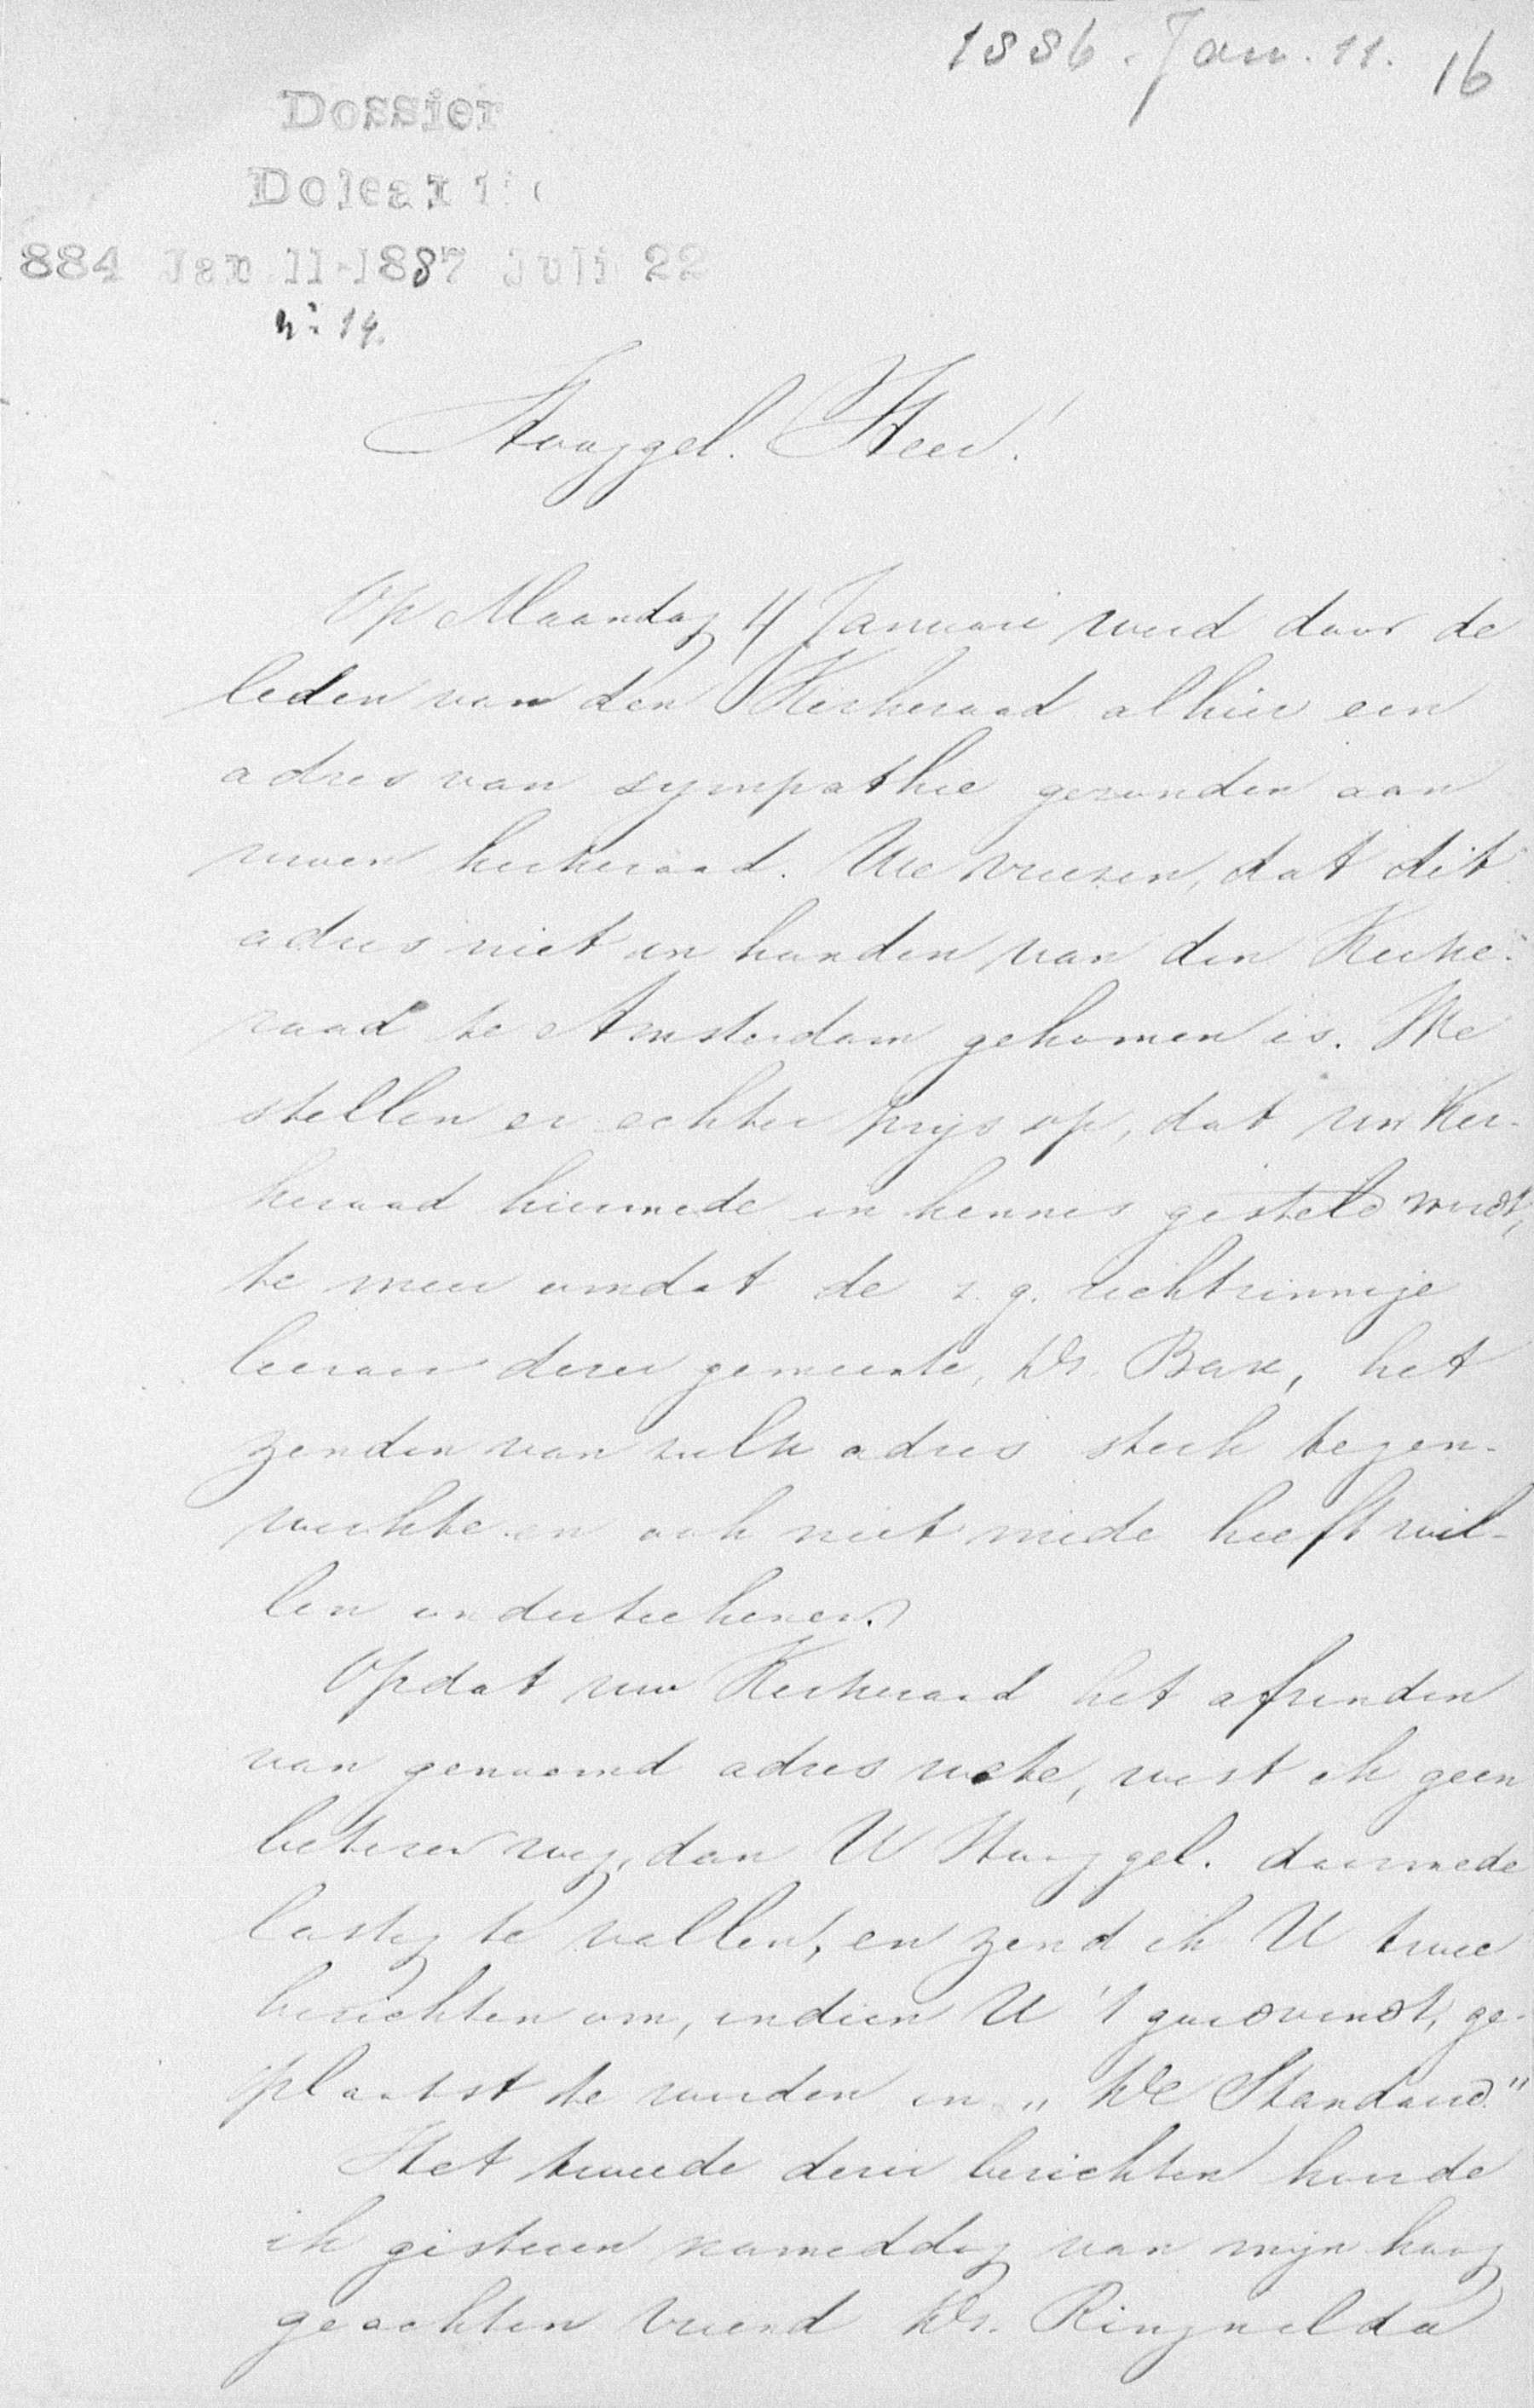 1886. Jan. 11. 16
Dossier
Doleantie
884 Jan 11-1887 Juli 22
no. 14.
Hooggel. Heer!
Op Maandag 4 Januari werd door de
leden van den Kerkeraad alhier een
adres van sympathie gezonden aan
uwen kerkeraad. We vreezen, dat dit
adres niet in handen van den Kerke-
raad te Amsterdam gekomen is. We
stellen er echter prijs op, dat uw Ker-
keraad hiermede in kennis gesteld wordt,
te meer omdat de z.g. rechtzinnige
leeraar dezer gemeente, Ds. Bax, het
zenden van zulk adres sterk tegen-
werkte en ook niet mede heeft wil-
len onderteekenen.
Opdat uw Kerkeraad het afzenden
van genoemd adres wete, wist ik geen
beteren weg, dan U Hooggel. daarmede
lastig te vallen, en zend ik U twee
berichten om, indien U 't goedvindt, ge-
plaatst te worden in "De Standaard."
Het tweede dezer berichten hoorde
ik gisteren namiddag van mijn hoog
geachten vriend Ds. Ringnalda